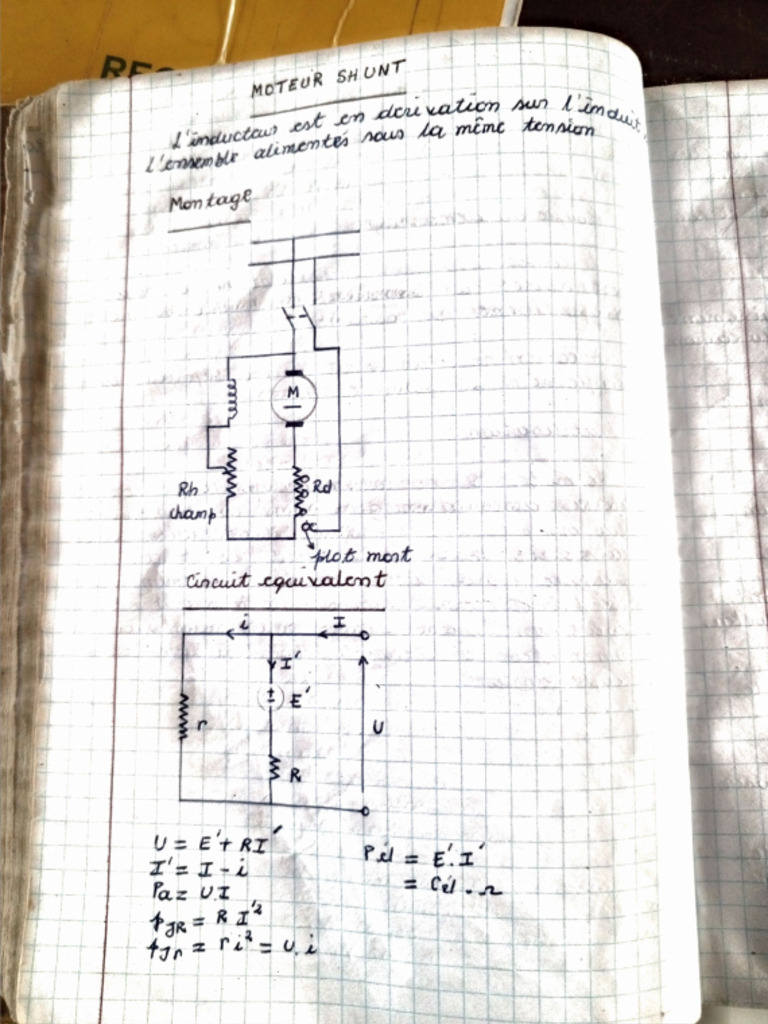 REC
MOTEUR SHUNT
L'inducteur est en derivation sur l'induit,
l'ensemble alimentés sous la même tension
Montage
M
Rh
champ
Rd
plot mort
Circuit equivalent
i
I
I'
E'
r
U
R
U = E' + RI'
I' = I - i
Pa = U.I
PJR = R I'²
PJr = r i² = U.i
Pél = E'. I'
= Cél . Ω